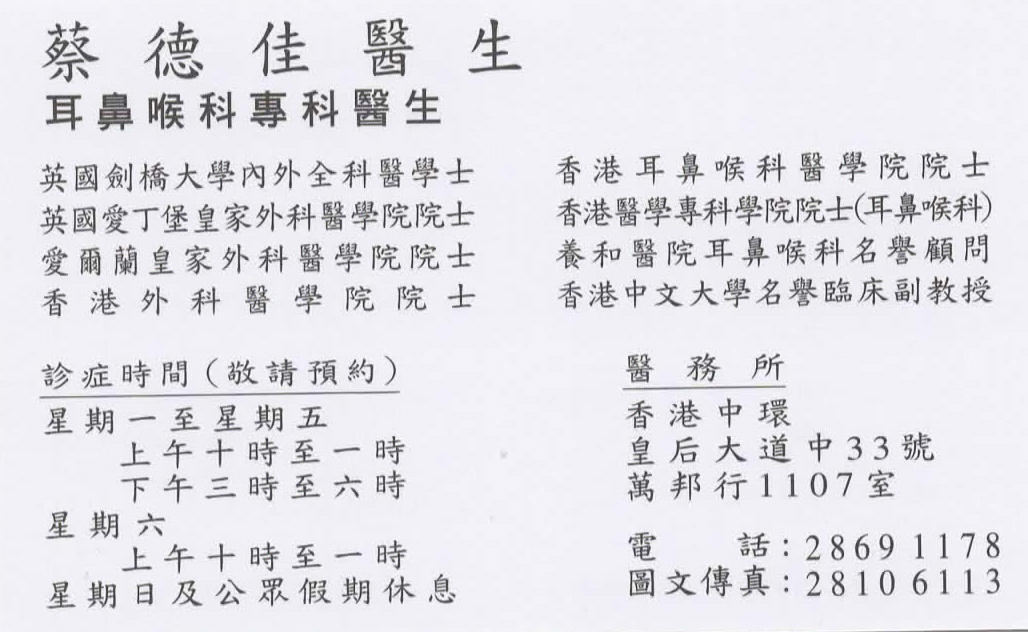 蔡德佳醫生
耳鼻喉科專科醫生
英國劍橋大學內外全科醫學士
英國愛丁堡皇家外科醫學院院士
愛爾蘭皇家外科醫學院院士
香港外科醫學院院士
香港耳鼻喉科醫學院院士
香港醫學專科學院院士(耳鼻喉科)
養和醫院耳鼻喉科名譽顧問
香港中文大學名譽臨床副教授
診症時間(敬請預約)
星期一至星期五
上午十時至一時
下午三時至六時
星期六
上午十時至一時
星期日及公眾假期休息
醫務所
香港中環
皇后大道中33號
萬邦行1107室
電話:2869 1178
圖文傳真:2810 6113